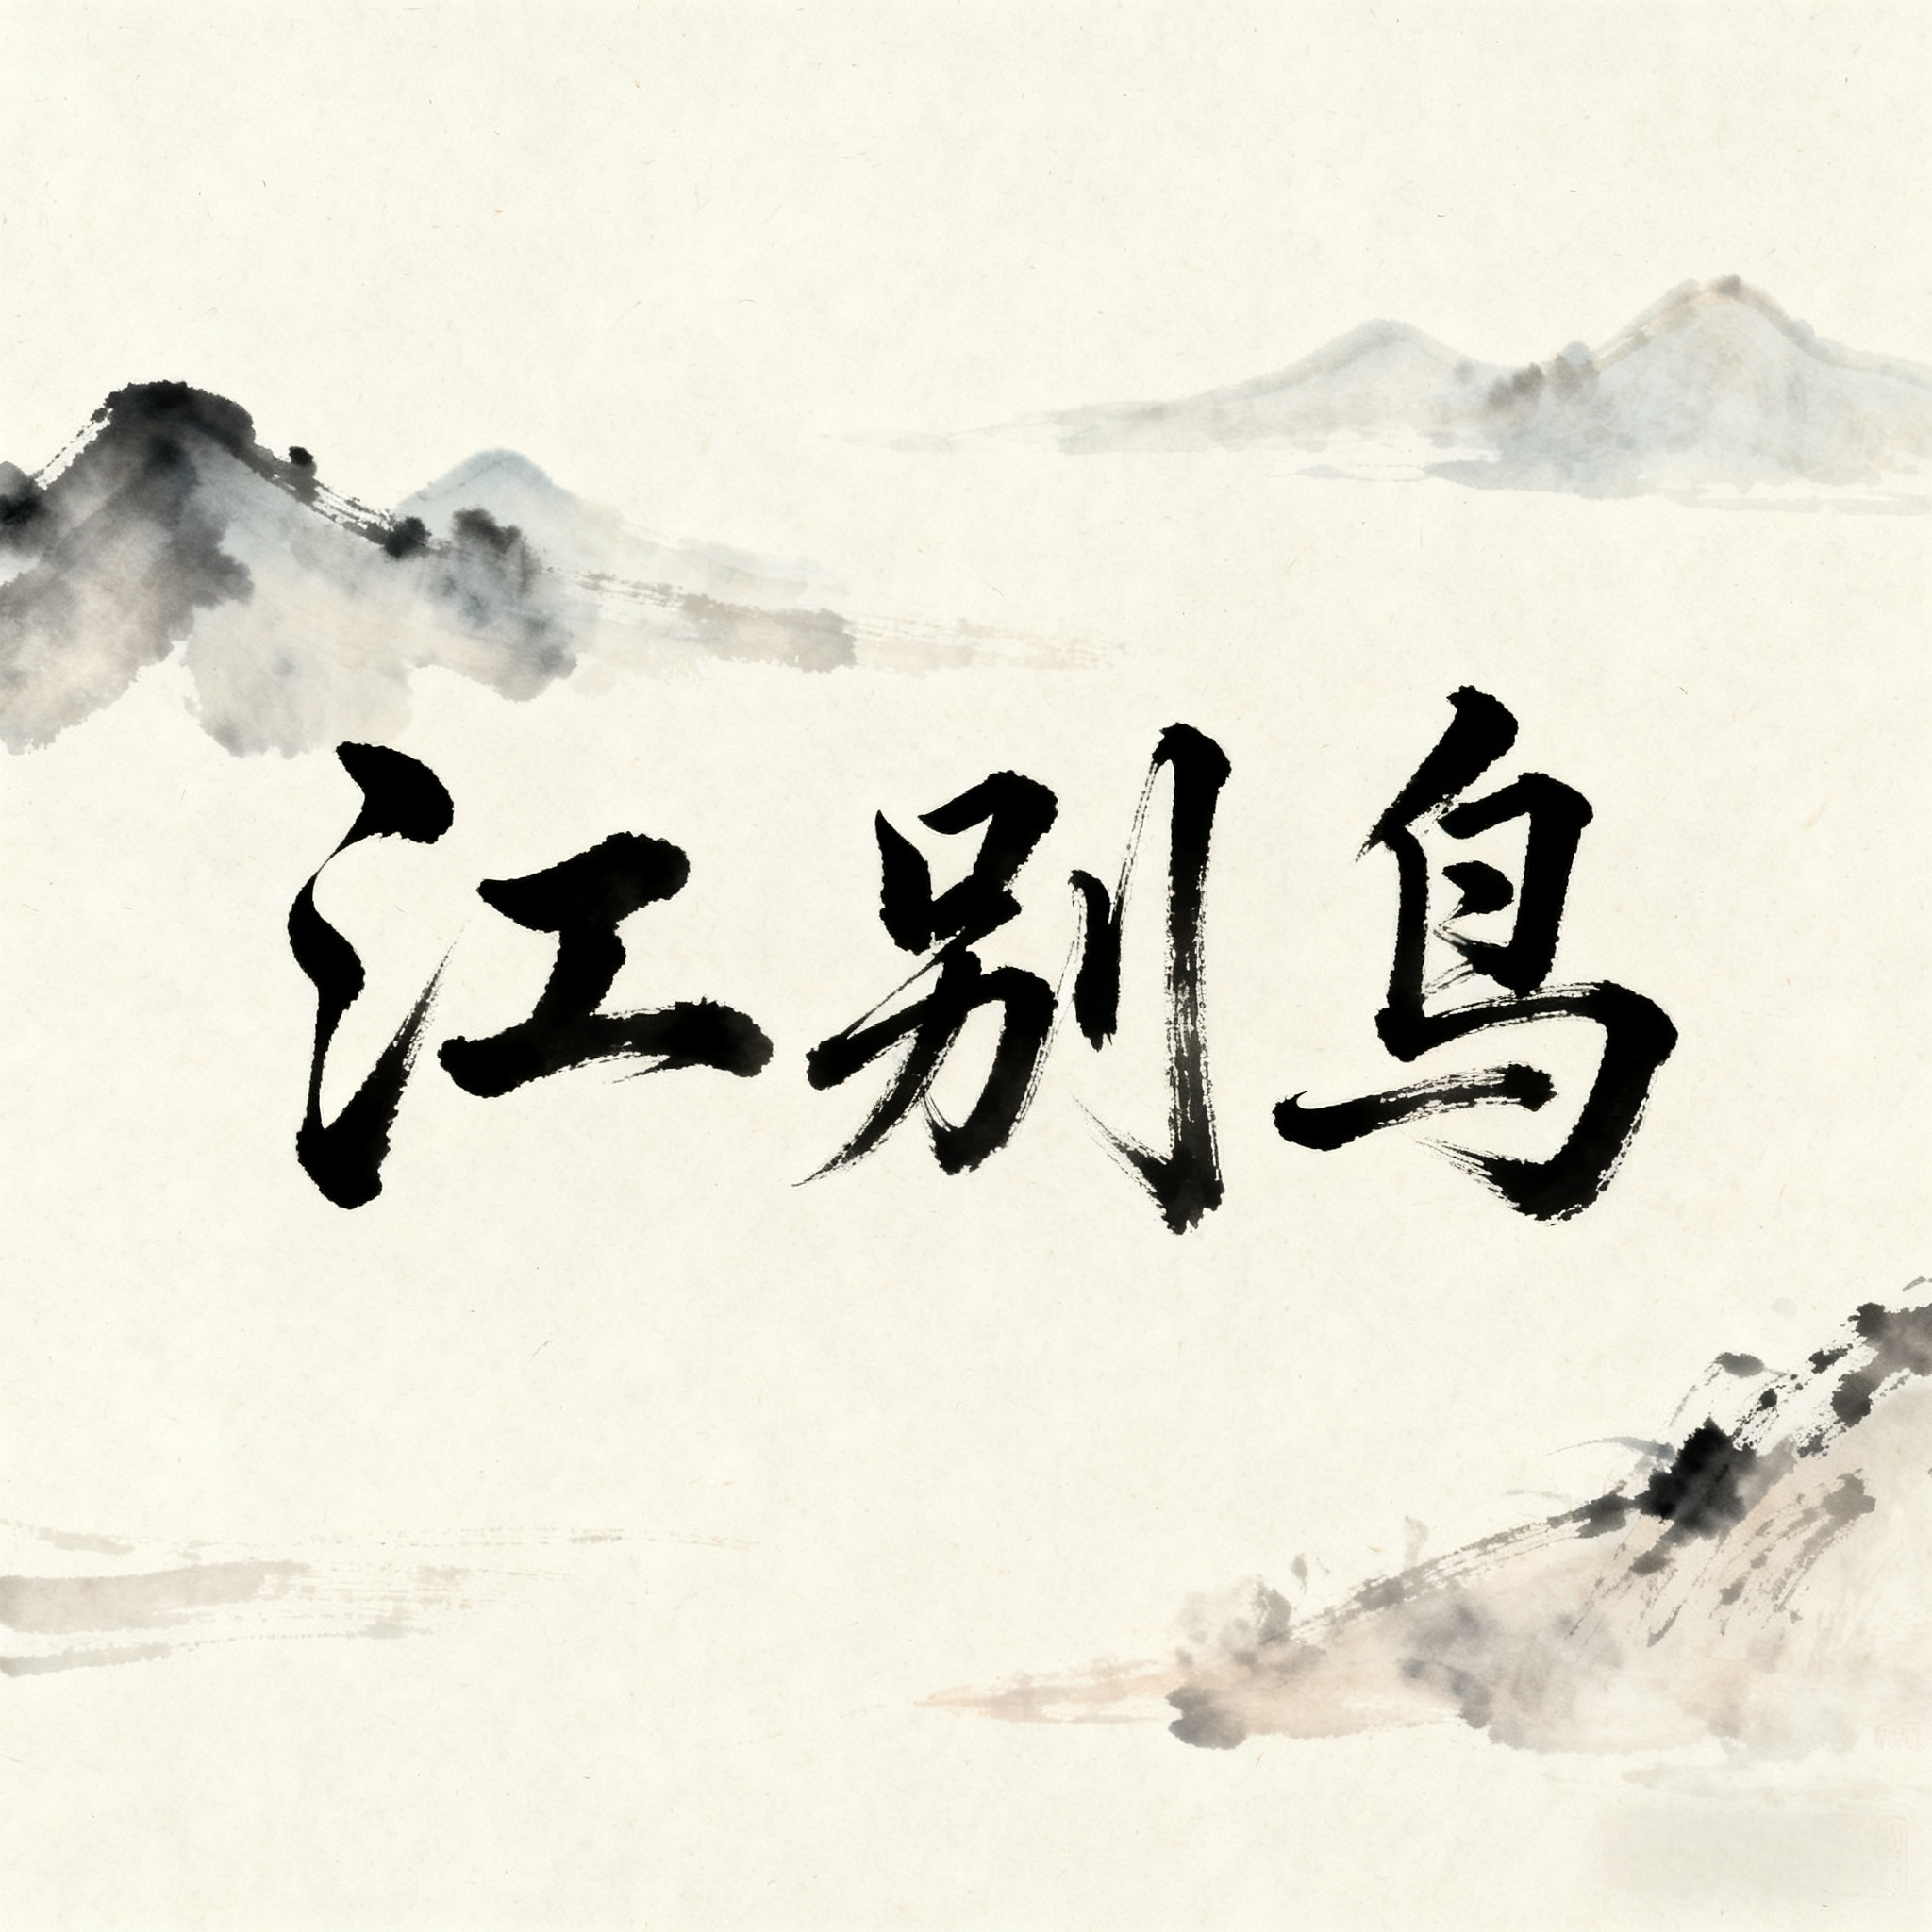 江别鸟